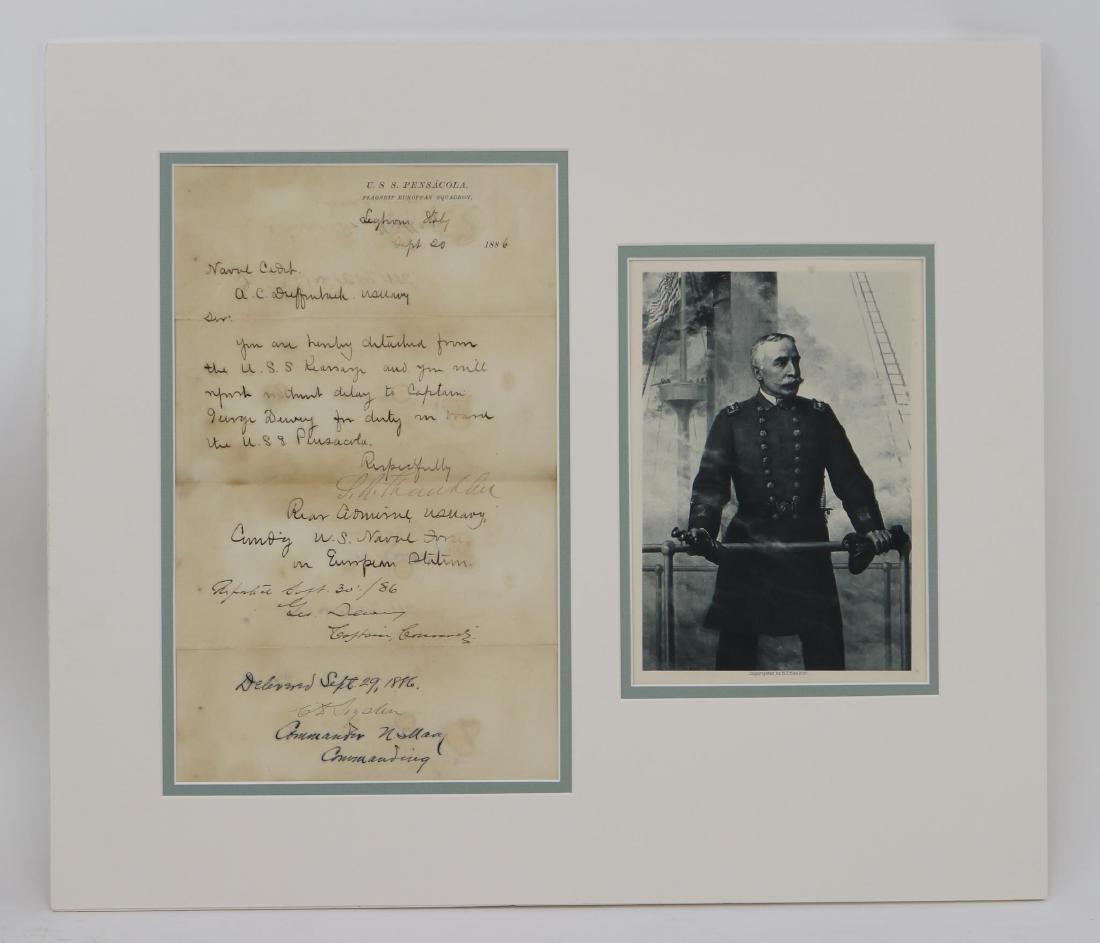 U. S. S. PENSACOLA,
FLAGSHIP EUROPEAN SQUADRON,
Leghorn Italy
Sept 20 1886
Naval Cadet.
A. C. Dieffenbach. US Navy
Sir:
You are hereby detached from
the U.S.S Kearsarge and you will
report without delay to Captain
George Dewey for duty on board
the U.S.S Pensacola.
Respectfully
Rear Admiral, US Navy,
Comd'g U.S. Naval Force
on European Station.
Reported Sept. 30th/86
Geo. Dewey
Captain, Commd'g.
Delivered Sept 29, 1886.
Commander U.S. Navy
Commanding